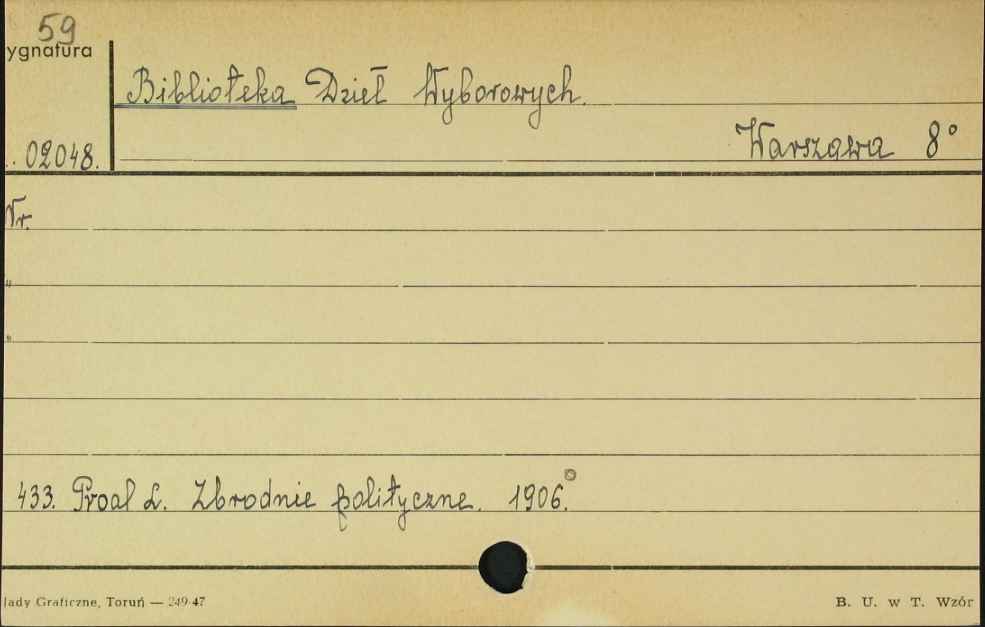 59
ygnatura
Biblioteka Dzieł Wyborowych.
Warszawa 8°
02048.
Nr.
"
"
433. Proal L. Zbrodnie polityczne. 1906.
łady Graficzne, Toruń — 249-47
B. U. w T. Wzór